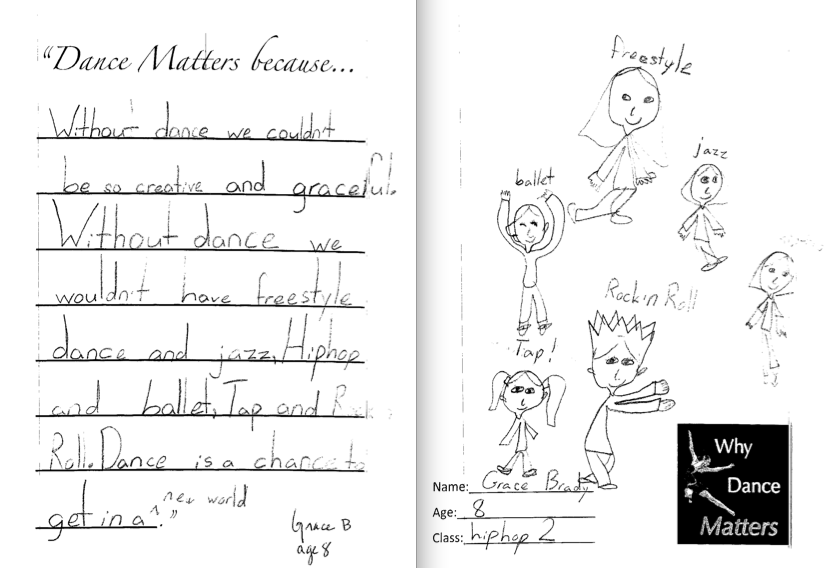 "Dance Matters because...
Without dance we couldn't
be so creative and graceful.
Without dance we
wouldn't have freestyle
dance and jazz, Hiphop
and ballet, Tap and Rock n
Roll. Dance is a chance to
get in a ^ new world."
Grace B
age 8
freestyle
jazz
ballet
Rock'n Roll
Tap!
Name: Grace Brady
Age: 8
Class: hiphop 2
Why
Dance
Matters